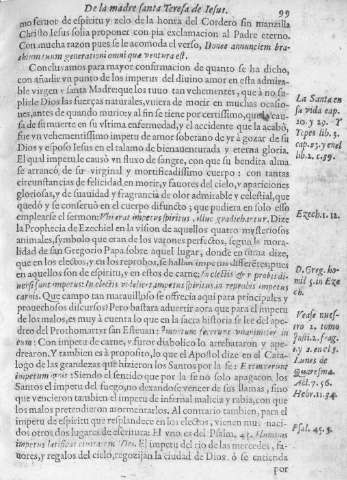 De la madre santa Teresa de Iesus.
99
mo feruor de espiritu y zelo de la honra del Cordero sin manzilla
Christo Iesus solia proponer con pia exclamacion al Padre eterno.
Con mucha razon pues se le acomoda el verso, Donec annuntiem bra-
chium tuum generationi omni quæ ventura est.
Concluyamos para mayor confirmacion de quanto se ha dicho,
con añadir vn punto de los impetus del diuino amor en esta admira-
ble virgen y santa Madre: que los tuuo tan vehementes, que à no su-
plirle Dios las fuerças naturales, viuiera de morir en muchas ocasio-
nes, antes de quando murio: y al fin se tiene por certissimo, que la cau-
sa de su muerte en su vltima enfermedad, y el accidente que la acabò,
fue vn vehementissimo impetu de amor soberano de yr à gozar de su
Dios y esposo Iesus en el talamo de bienauenturada y eterna gloria.
El qual impetu le causò vn fluxo de sangre, con que su bendita alma
se arrancò de su virginal y mortificadissimo cuerpo: con tantas
circunstancias de felicidad en morir, y fauores del cielo, y apariciones
gloriosas, y de suauidad y fragrancia de olor admirable y celestial, que
quedò y se conseruò en el cuerpo difuncto; que pudiera en solo esso
emplearse el sermon: Vbi erat impetus spiritus, illuc gradiebantur. Dize
la Prophecia de Ezechiel en la vision de aquellos quatro mysteriosos
animales, symbolo que eran de los varones perfectos, segun la mora-
lidad de san Gregorio Papa sobre aquel lugar, donde en suma dize,
que en los electos, y en los reprobos, se hallan impetus differetes, pues
en aquellos son de espiritu, y en estos de carne: In electis & reprobis di-
uersi sunt impetus: In electis videlicet impetus spiritus, in reprobis impetus
carnis. Que campo tan marauilloso se offrecia aqui para principales y
prouechosos discursos? Pero bastara aduertir aora que para el impetu
de los malos, es muy à cuenta lo que en la sacra historia se lee del ape-
dreo del Prothomartyr san Esteuan: Impetum fecerunt vnanimiter in
eum: Con impetu de carne, y furor diabolico lo arrebataron y ape-
drearon. Y tambien es à proposito, lo que el Apostol dize en el Cata-
logo de las grandezas que hizieron los Santos por la fe: Extinxerunt
impetum ignis: Siendo el sentido que por la fe no solo apagaron los
Santos el impetu del fuego, no dexandose vencer de sus llamas; sino
que vencieron tambien el impetu de infernal malicia y rabia, con que
los malos pretendieron atormentarlos. Al contrario tambien, para el
impetu de espiritu que resplandece en los electos, vienen muy naci-
dos otros dos lugares de escritura: El vno es del Psalm. 45. Fluminis
impetus lætificat ciuitatem Dei. El impetu del rio de las mercedes, fa-
uores, y regalos del cielo, regozijan la ciudad de Dios. ò se entienda
por
La Santa en
su vida cap.
20. y 29. Y
Yepes lib. 3.
lib. 2. c. 39.
Ezech. 1. 12.
D. Greg. ho-
mil. 5. in Eze
ch.
Vease nues-
tro 2. tomo
Lunes de
Quaresma.
Act. 7. 56.
Hebr. 11. 34.
Psal. 45. 5.